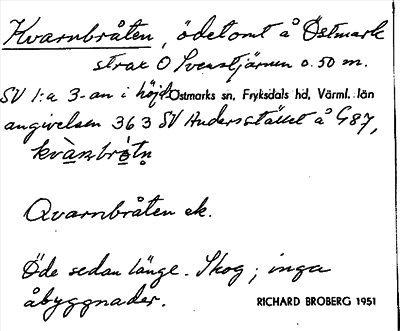 Kvarnbråten, ödetomt å Östmark
strax O Svenstjärnen o. 50 m.
SV 1:a 3-an i höjd- Östmarks sn, Fryksdals hd, Värml. län
angivelsen 363 SV Andersstället å G87,
Qvarnbråten ek.
Öde sedan länge. Skog; inga
åbyggnader.
RICHARD BROBERG 1951